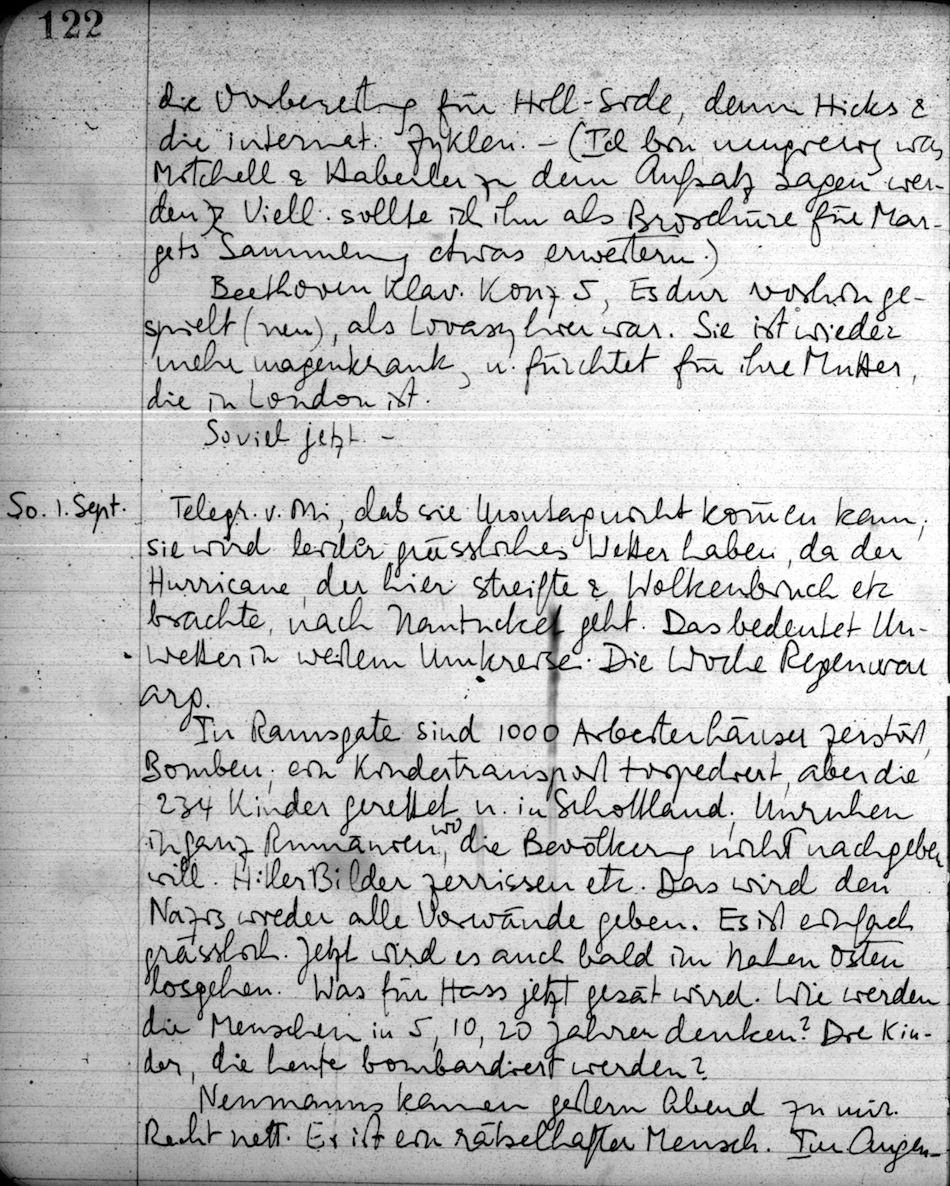 122
die Vorbereitung für Hill-Side, dann Hicks &
die internat. Zyklen. – (Ich bin neugierig was
Mitchell & Haberler zu dem Aufsatz sagen wer-
den. Viell. sollte ich ihn als Broschüre für Mar-
gets Sammlung etwas erweitern.)
Beethoven Klav. Konz 5, Esdur vorhin ge-
spielt (neu), als Lovasy hier war. Sie ist wieder
mehr magenkrank, u. fürchtet für ihre Mutter,
die in London ist.
Soviel jetzt. –
So. 1. Sept. Telegr. v. Mi, daß sie Montag nicht kom̄en kann,
sie wird leider grässliches Wetter haben, da der
Hurricane, der hier streifte & Wolkenbruch etc
brachte, nach Nantucket geht. Das bedeutet Un-
wetter in weitem Umkreise. Die Woche Regen war
arg.
In Ramsgate sind 1000 Arbeiterhäuser zerstört,
Bomben; ein Kindertransport torpediert, aber die
234 Kinder gerettet u. in Schottland; Unruhen
in ganz Rumänien, wo die Bevölkerung nicht nachgeben
will. Hitler Bilder zerrissen etc. Das wird den
Nazis wieder alle Vorwände geben. Es ist einfach
grässlich. Jetzt wird es auch bald im Nahen Osten
losgehen. Was für Hass jetzt gesät wird. Wie werden
die Menschen in 5, 10, 20 Jahren denken? Die Kin-
der, die heute bombardiert werden?
Neumanns kamen gestern Abend zu mir.
Recht nett. Er ist ein rätselhafter Mensch. Im Augen-